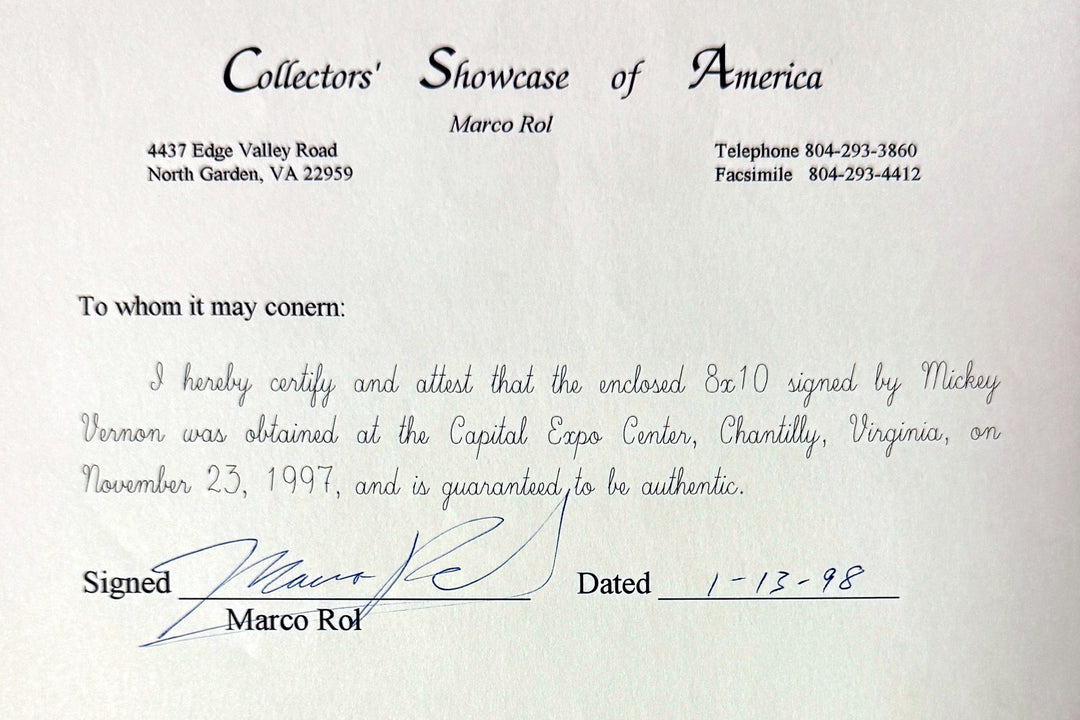 Collectors' Showcase of America
Marco Rol
4437 Edge Valley Road
North Garden, VA 22959
Telephone 804-293-3860
Facsimile 804-293-4412
To whom it may conern:
I hereby certify and attest that the enclosed 8x10 signed by Mickey
Vernon was obtained at the Capital Expo Center, Chantilly, Virginia, on
November 23, 1997, and is guaranteed to be authentic.
Signed Marco Rol Dated 1-13-98
Marco Rol